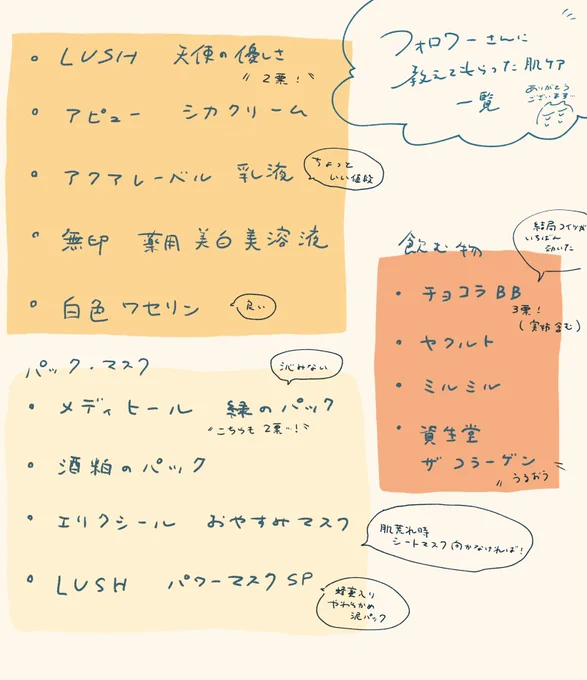 フォロワーさんに
教えてもらった肌ケア
一覧
ありがとう
ございます…
LUSH 天使の優しさ
〃2票!〃
アピュー シカクリーム
アクアレーベル 乳液
ちょっと
いい値段
無印 薬用美白美溶液
白色ワセリン
良い
パック・マスク
沁みない
メディヒール 緑のパック
〃こちらも2票…!〃
酒粕のパック
エリクシール おやすみマスク
肌荒れ時
シートマスク向かなければ!
LUSH パワーマスクSP
蜂蜜入り
やわらかめ
泥パック
飲む物
結局コイツが
いちばん
効いた
チョコラBB
3票!
(実姉含む)
ヤクルト
ミルミル
資生堂
ザ コラーゲン
〃うるおう〃